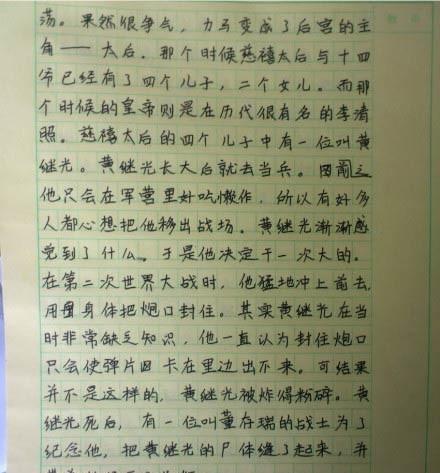 荡。果然很争气，力马变成了后宫的主
角——太后。那个时候慈禧太后与十四
爷已经有了四个儿子，二个女儿。而那
个时候的皇帝则是在历代很有名的李清
照。慈禧太后的四个儿子中有一位叫黄
继光。黄继光长大后就去当兵。因前之
他只会在军营里好吃懒作，所以有好多
人都心想把他移出战场。黄继光渐渐感
觉到了什么。于是他决定干一次大的。
在第二次世界大战时，他猛地冲上前去，
用身体把炮口封住。其实黄继光在当
时非常缺乏知识，他一直认为封住炮口
只会使弹片卡在里边出不来。可结果
并不是这样的，黄继光被炸得粉碎。黄
继光死后，有一位叫董存瑞的战士为了
纪念他，把黄继光的尸体缝了起来，并